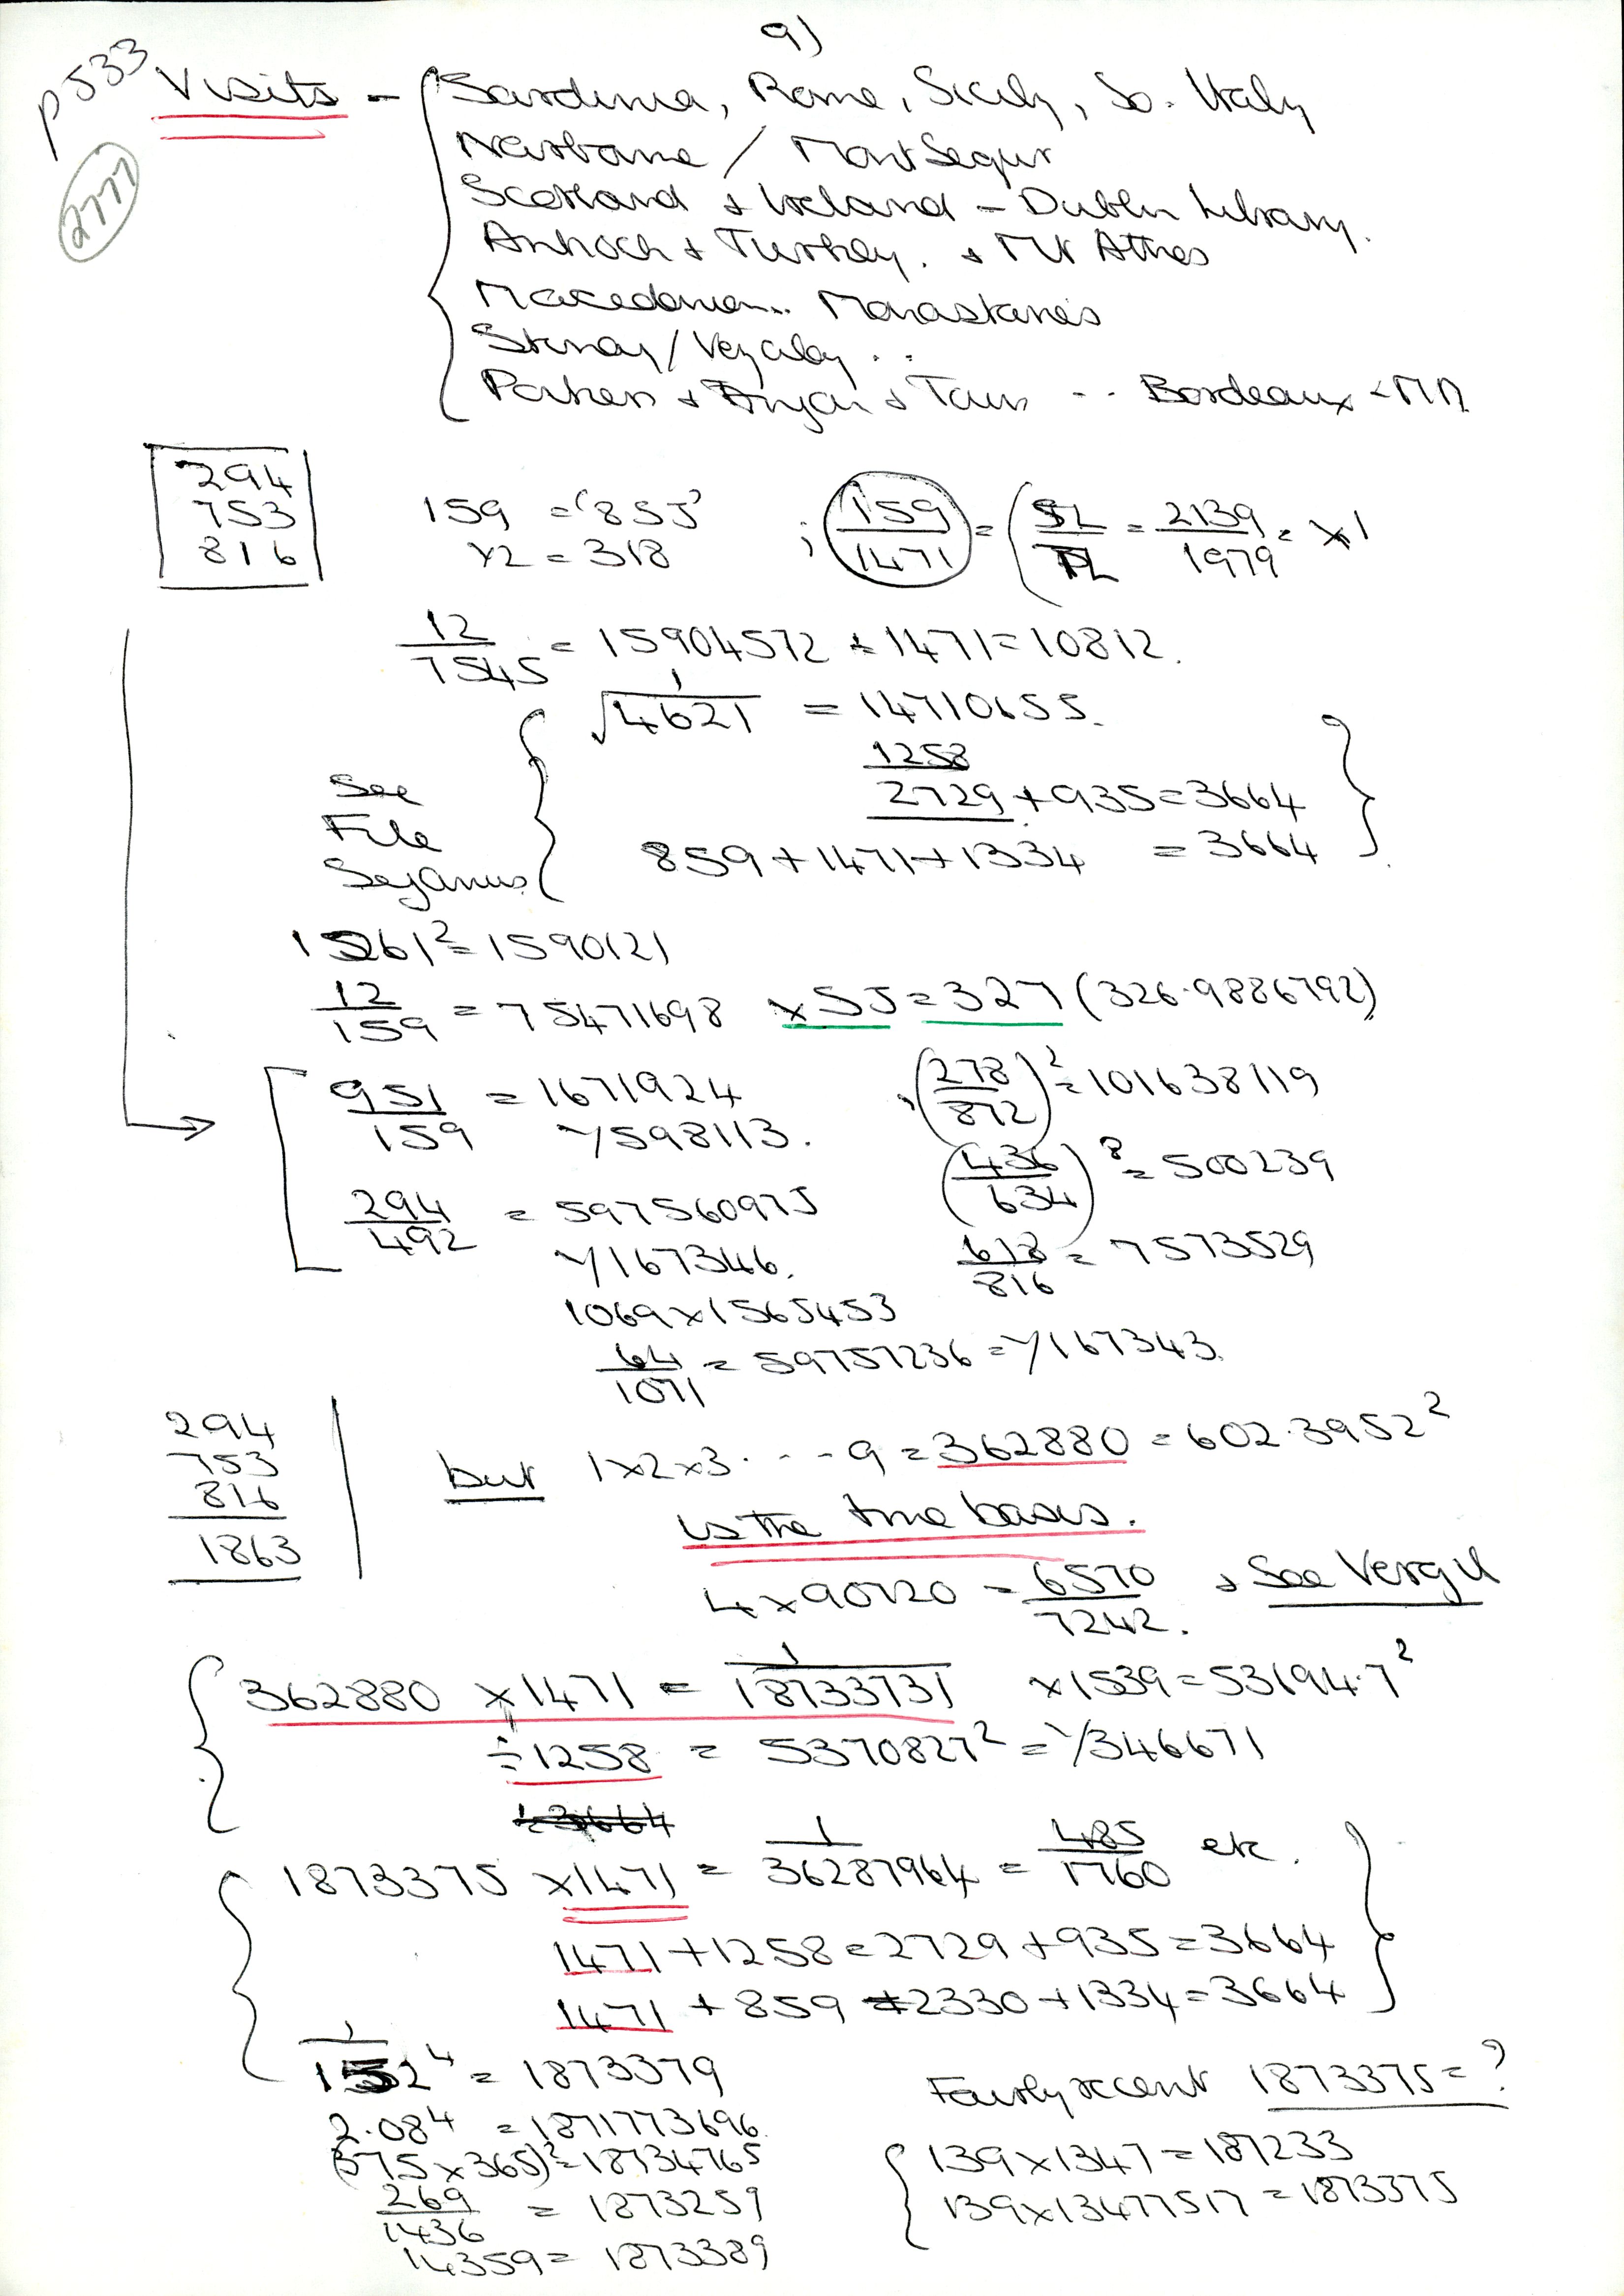 9)
p533
2777
Visits - Sardinia, Rome, Sicily, So. Italy
Narbonne / MontSegur
Scotland + Ireland - Dublin Library.
Antioch + Turkey. + Mt Athos
Macedonia... Monasteries
Stenay/Vezelay ..
Poitiers + Anjou + Tours -- Bordeaux
294
753
816
159 = '855'
x2 = 318
; 159/1471 = ( = 2139/1979 = x1
12/7545 = 15904572 ÷ 1471 = 10812.
1/√4621 = 14710655.
1258
2729 + 935 = 3664
859 + 1471 + 1334 = 3664
See
File
Sejanus
1261² = 1590121
12/159 = 75471698 x55 = 327 (326.9886792)
951/159 = 1671924
Y598113.
(278/872)² = 101638119
(436/634)⁸ = 500239
294/492 = 597560975
Y167346.
618/816 = 7573529
1069 x 1565453
64/1071 = 59757236 = Y167343.
294
753
816
1863
but 1x2x3. - - - 9 = 362880 = 602.3952²
is the true basis.
4 x 90720 = 6570/7242. + See Vergil
362880 x 1471 = 1/18733731 x 1539 = 53194.7²
÷ 1258 = 5370827² = Y346671
÷ 3664
1873375 x 1471 = 1/36287964 = 485/1760 etc.
1471 + 1258 = 2729 + 935 = 3664
1471 + 859 = 2330 + 1334 = 3664
1/152⁴ = 1873379
2.08⁴ = 1871773696
(375 x 365)² = 18734765
269/1436 = 1873259
14359 = 1873389
Fairly recent 1873375 = ?
139 x 1347 = 187233
139 x 13477517 = 1873375